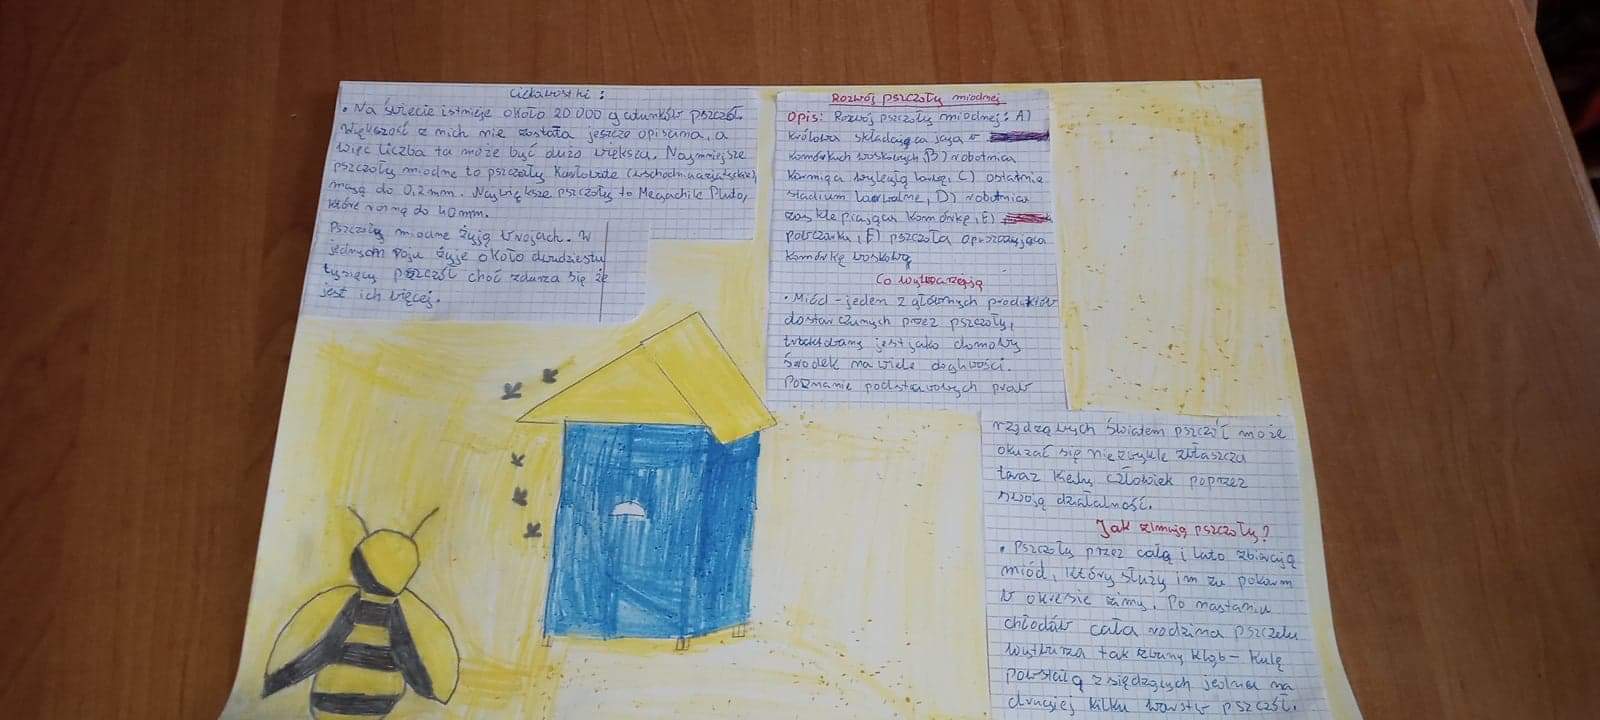 Ciekawostki:
• Na świecie istnieje około 20 000 gatunków pszczół.
Większość z nich nie została jeszcze opisana, a
więc liczba ta może być dużo większa. Najmniejsze
pszczoły miodne to pszczoły Karłowate (wschodnioazjatyckie),
mają do 0,2 mm. Największe pszczoły to Megachile Pluto,
które rosną do 40 mm.
Pszczoły miodne żyją w rojach. W
jednym roju żyje około dwudziestu
tysięcy pszczół choć zdarza się że
jest ich więcej.
Rozwój pszczoły miodnej
Opis: Rozwój pszczoły miodnej: A)
Królowa składająca jaja w
komórkach woskowych, B) robotnica
karmiąca wylęgłą larwę, C) ostatnie
stadium larwalne, D) robotnica
zasklepiająca komórkę, E)
poczwarka, F) pszczoła opuszczająca
komórkę woskową
Co wytwarzają
• Miód - jeden z głównych produktów
dostarczanych przez pszczoły,
traktowany jest jako domowy
środek na wiele dogliwości.
Poznanie podstawowych praw
rządzących światem pszczół może
okazać się niezwykle zwłaszcza
teraz kiedy człowiek poprzez
swoją działalność.
Jak zimują pszczoły?
• Pszczoły przez całą i lato zbierają
miód, który służy im za pokarm
w okresie zimy. Po nastaniu
chłodów cała rodzina pszczela
wytwarza tak zwany kłąb - kulę
powstałą z siedzących jedna na
drugiej kilku warstw pszczół.